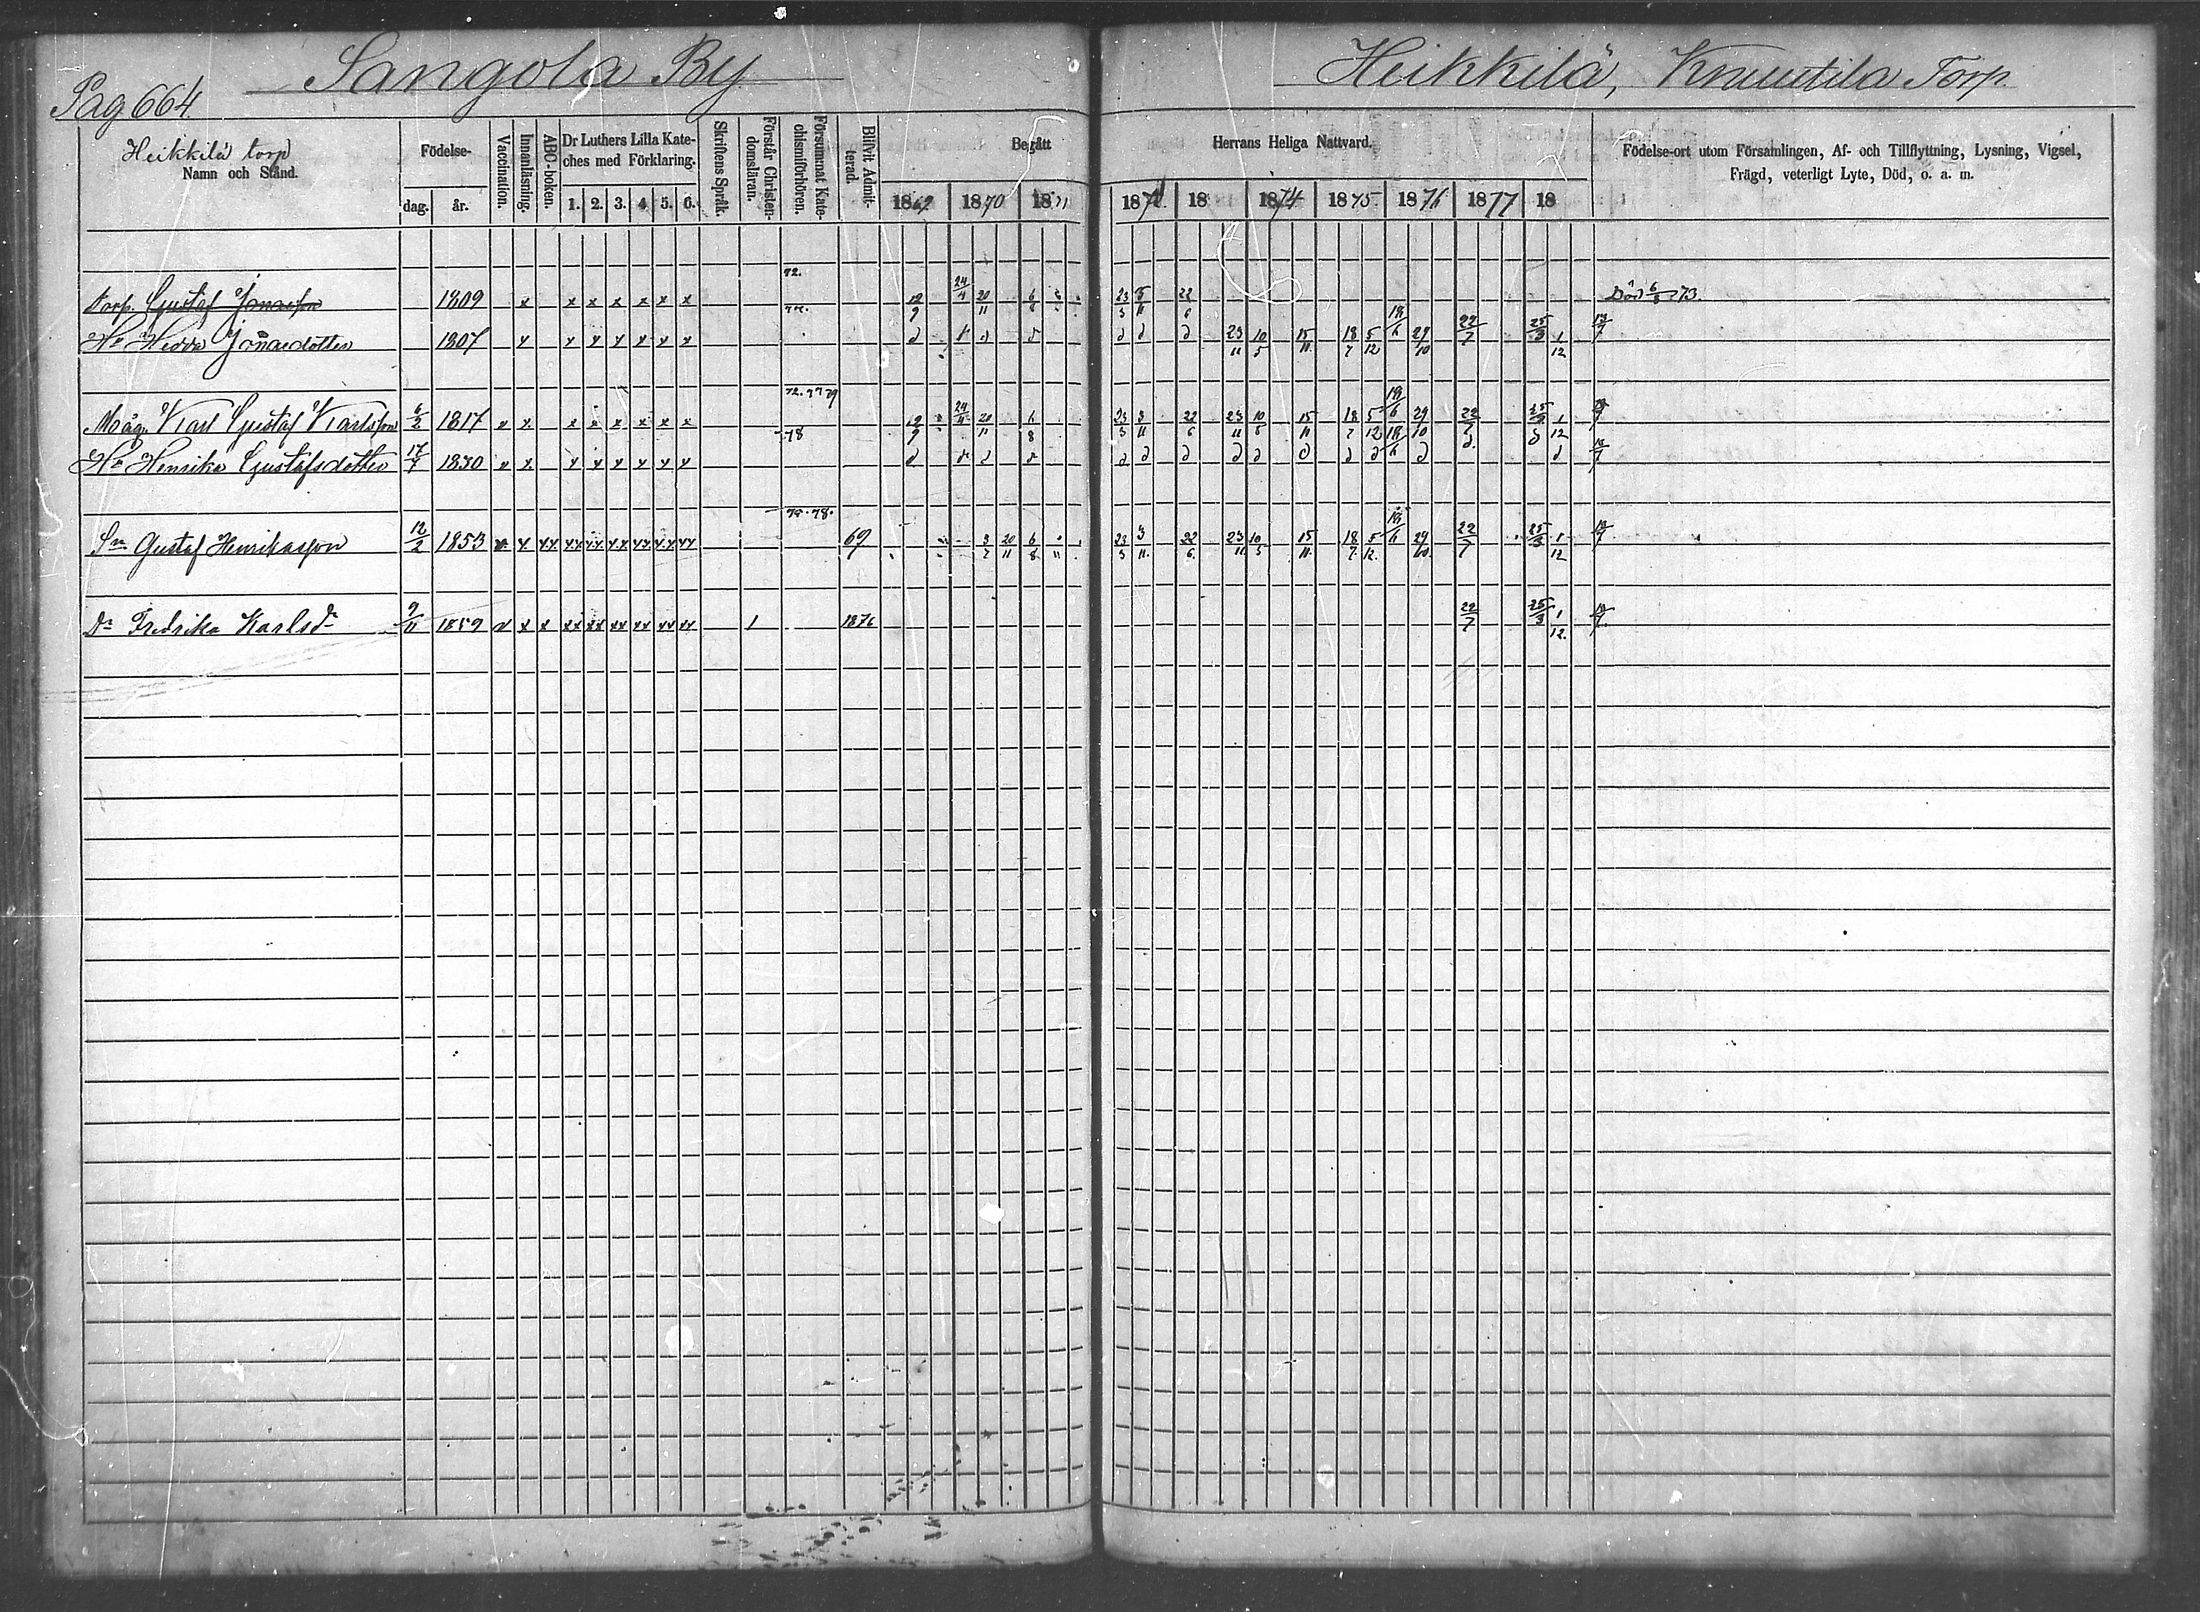 Pag 664.
Sangola By
Heikkilä, Knuutila Torp.
Heikkilä torp
Namn och Stånd.
Födelse-
dag. år.
Vaccination.
Innanläsning.
ABC-boken.
Dr Luthers Lilla Kate-
ches med Förklaring.
1. 2. 3. 4. 5. 6.
Skriftens Språk.
Förstår Christen-
domsläran.
Försummat Kate-
chismiförhören.
Blifvit Admit-
terad.
Begått
1869 1870 1871
Herrans Heliga Nattvard.
1872 18 1874 1875. 1876 1877 18
Födelse-ort utom Församlingen, Af- och Tillflyttning, Lysning, Vigsel,
Frägd, veterligt Lyte, Död, o. a. m.
72.
Torp. Gustaf Jonasson 1809 x x x x x x x 12/9 24/4 20/11 6/8 23/3 3/11 22/6 Död 6/8 73.
Hu Hedda Jonaedotter 1807 x x x x x x x 23/11 10/5 15/11 18/7 5/12 18/6 29/10 22/7 25/3 1/12 13/7
72. 77 79
Måg Karl Gustaf Karlsson 6/2 1817 v x x x x x x x 12/9 24/4 20/11 6/8 23/3 3/11 22/6 23/11 10/5 15/11 18/7 5/12 18/6 29/10 22/7 25/3 1/12
78
Hu Henrika Gustafsdotter 17/7 1830 v x x x x x x x 18/6 13/7
78.
Sn Gustaf Henriksson 12/2 1853 v x xx xx xx xx xx xx xx 69 3/7 20/11 6/8 23/3 3/11. 22/6. 23/11 10/5 15/11. 18/7. 5/12. 18/6 29/10 22/7 25/3 1/12 13/7
Dr Fredrika Karlsdr 9/11 1859 v x x xx xx xx xx xx xx 1 1876 22/7 25/3 1/12. 13/7.